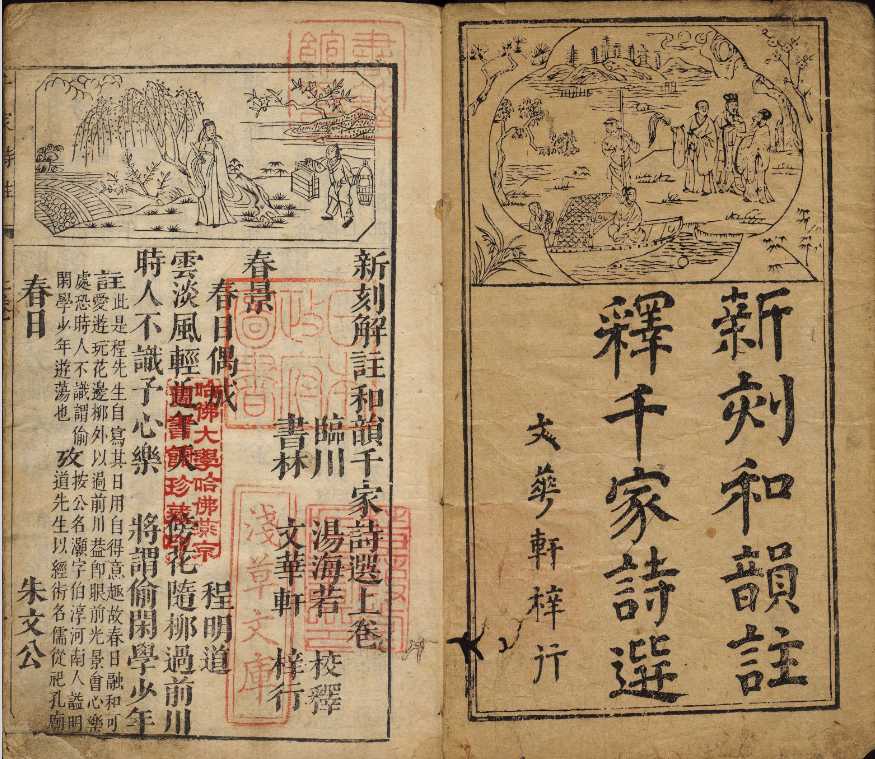 新刻和韻註
釋千家詩選
文華軒梓行
新刻解註和韻千家詩選上卷
臨川 湯海若 校釋
書林 文華軒 梓行
春景
春日偶成 程明道
雲淡風輕近午天 傍花隨柳過前川
時人不識予心樂 將謂偷閑學少年
註此是程先生自寫其日用自得意趣故春日融和可
愛遊玩花邊柳外以過前川葢卽眼前光景會心樂
處恐時人不識謂偷
閑學少年遊蕩也
攷按公名灝字伯淳河南人謚明
道先生以經術名儒從祀孔廟
春日 朱文公
淺草文庫
日本政府圖書
哈佛大學哈佛燕京
圖書館珍藏印